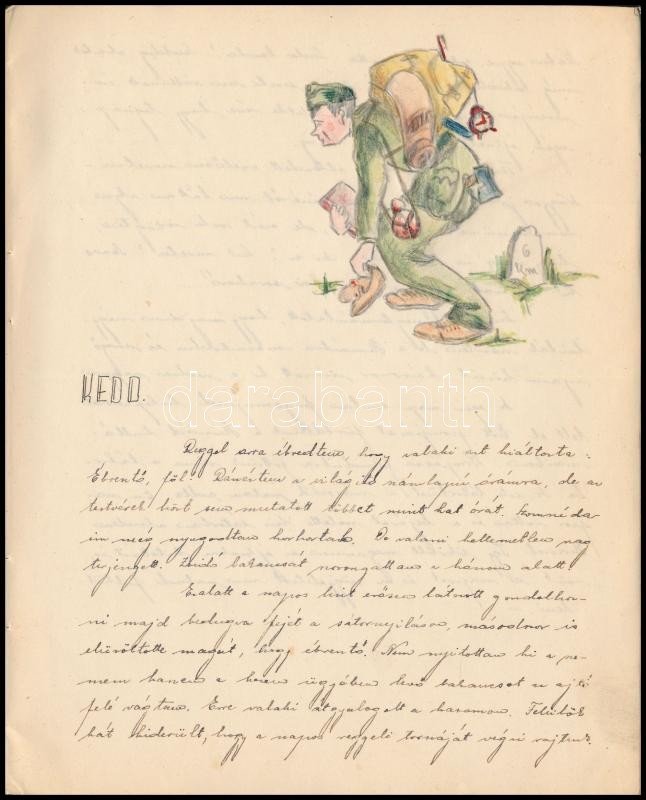 6
km
KEDD.
Reggel arra ébredtem, hogy valaki azt kiáltozta:
Ébresztő, föl! Ránéztem a világító számlapú órámra, de az
testvérek közt sem mutatott többet mint hat órát. Szomszéda-
im még nyugodtan horkoltak. De valami kellemetlen szag
terjengett. Zoidó bakancsát szorongattam a hónom alatt.
Ezalatt a napos kint erősen látszott gondolkoz-
ni majd bedugva fejét a sátornyíláson, másodszor is
elüvöltötte magát, hogy ébresztő. Nem nyitottam ki a sze-
mem hanem a kezem ügyében levő bakancsot az ajtó
felé vágtam. Erre valaki átgyalogolt a hasamon. Felülök
hát kiderült, hogy a napos reggeli tornáját végzi rajtunk.
darabanth